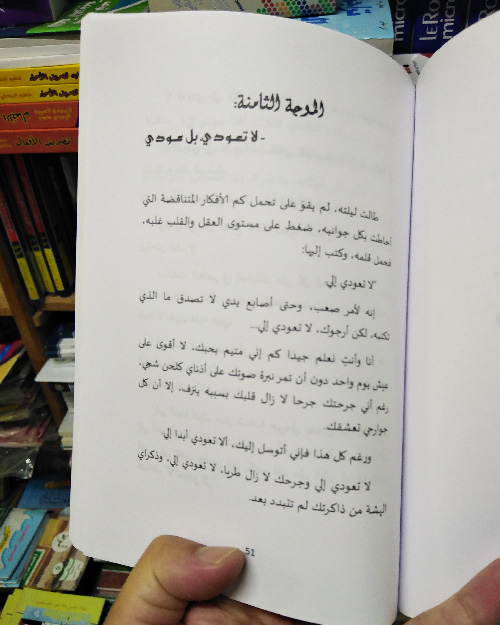 الموجة الثامنة:
- لا تعودي بل عودي
طالت ليلته، لم يقوَ على تحمل كم الأفكار المتناقضة التي
أحاطت بكل جوانبه، ضغط على مستوى العقل والقلب غلبه،
فحمل قلمه، وكتب إليها:
"لا تعودي إلي.
إنه لأمر صعب، وحتى أصابع يدي لا تصدق ما الذي
تكتبه، لكن أرجوك، لا تعودي إلي...
أنا وأنتِ نعلم جيدا كم إني متيم بحبك، لا أقوى على
عيش يوم واحد دون أن تمر نبرة صوتك على أذناي كلحن شجي،
رغم أني جرحتك جرحا لا زال قلبك بسببه ينزف، إلا أن كل
جوارحي تعشقك.
ورغم كل هذا فإني أتوسل إليك، ألا تعودي أبدا إلي.
لا تعودي إلي وجرحك لا زال طريا، لا تعودي إلي، وذكراي
البشة من ذاكرتك لم تتبدد بعد.
51
LeRo
micro
micro